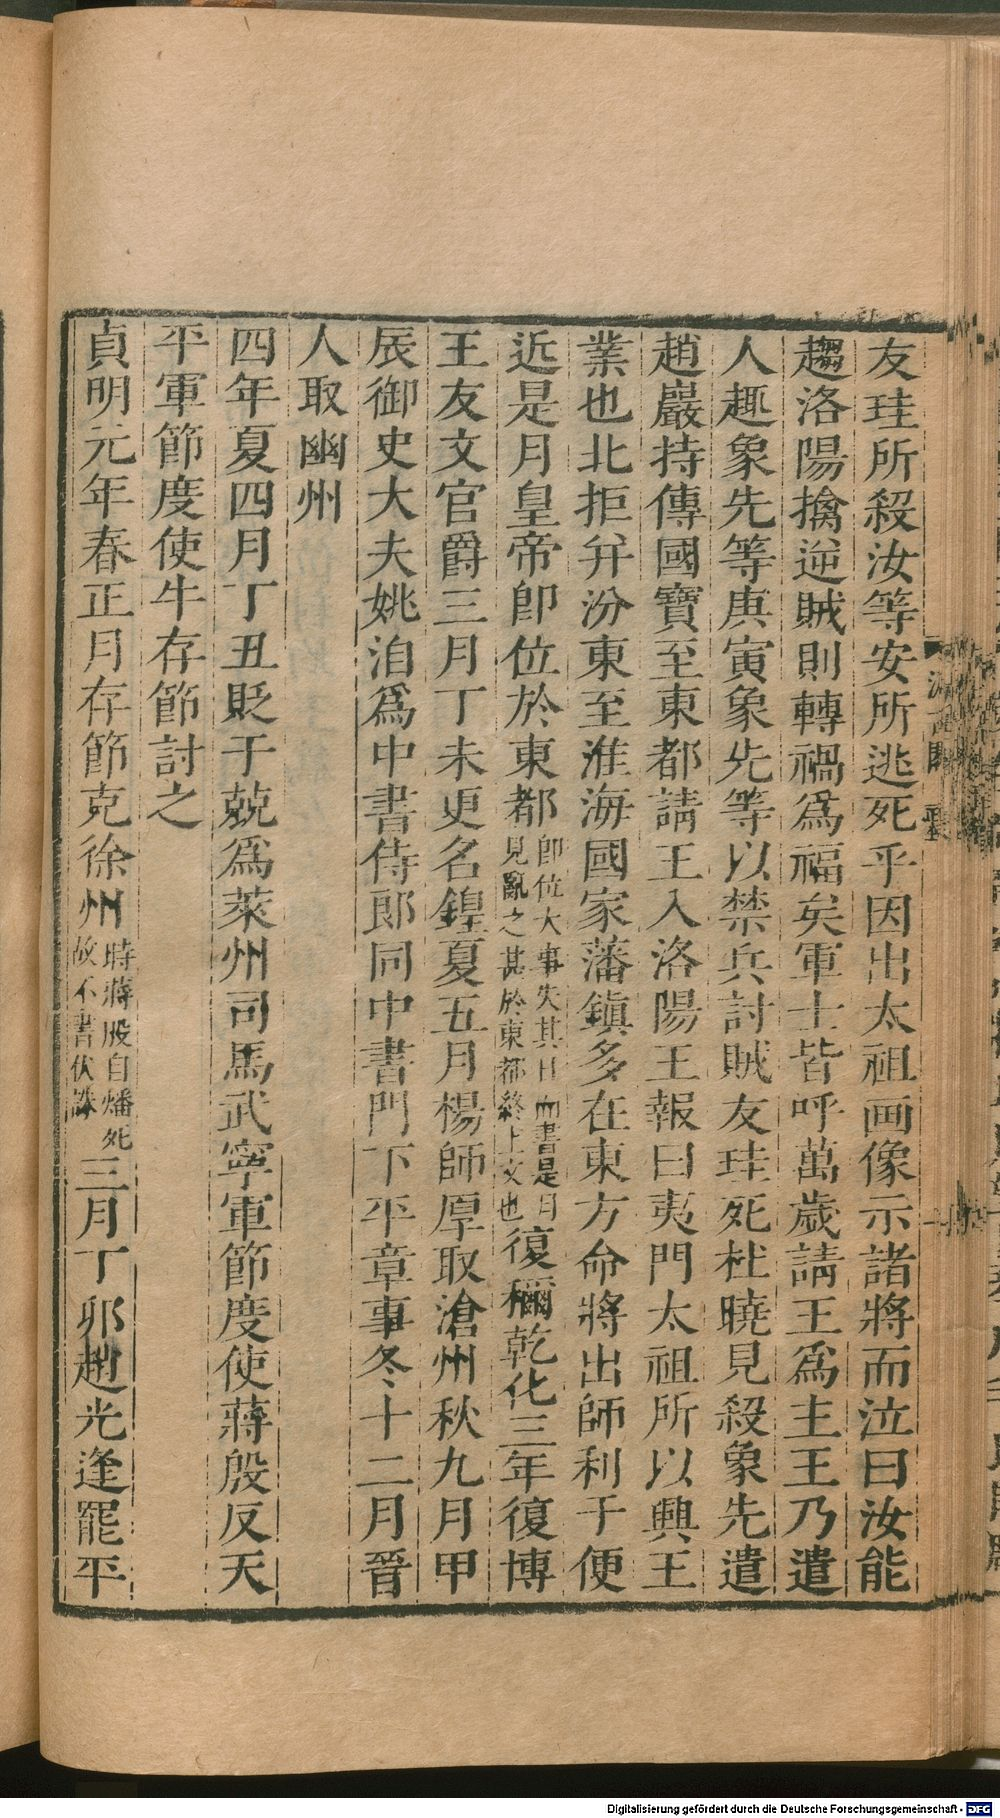 友珪所殺汝等安所逃死乎因出太祖画像示諸將而泣曰汝能
趨洛陽擒逆賊則轉禍爲福矣軍士皆呼萬歲請王爲主王乃遣
人趣象先等庚寅象先等以禁兵討賊友珪死杜曉見殺象先遣
趙巖持傳國寶至東都請王入洛陽王報曰夷門太祖所以興王
業也北拒并汾東至淮海國家藩鎮多在東方命將出師利于便
近是月皇帝卽位於東都卽位大事失其日而書是月見亂之甚於東都終上文也復稱乾化三年復博
王友文官爵三月丁未更名鍠夏五月楊師厚取滄州秋九月甲
辰御史大夫姚洎爲中書侍郎同中書門下平章事冬十二月晉
人取幽州
四年夏四月丁丑貶于兢爲萊州司馬武寧軍節度使蔣殷反天
平軍節度使牛存節討之
貞明元年春正月存節克徐州時蔣殷自燔死故不書伏誅三月丁卯趙光逢罷平
Digitalisierung gefördert durch die Deutsche Forschungsgemeinschaft - DFG